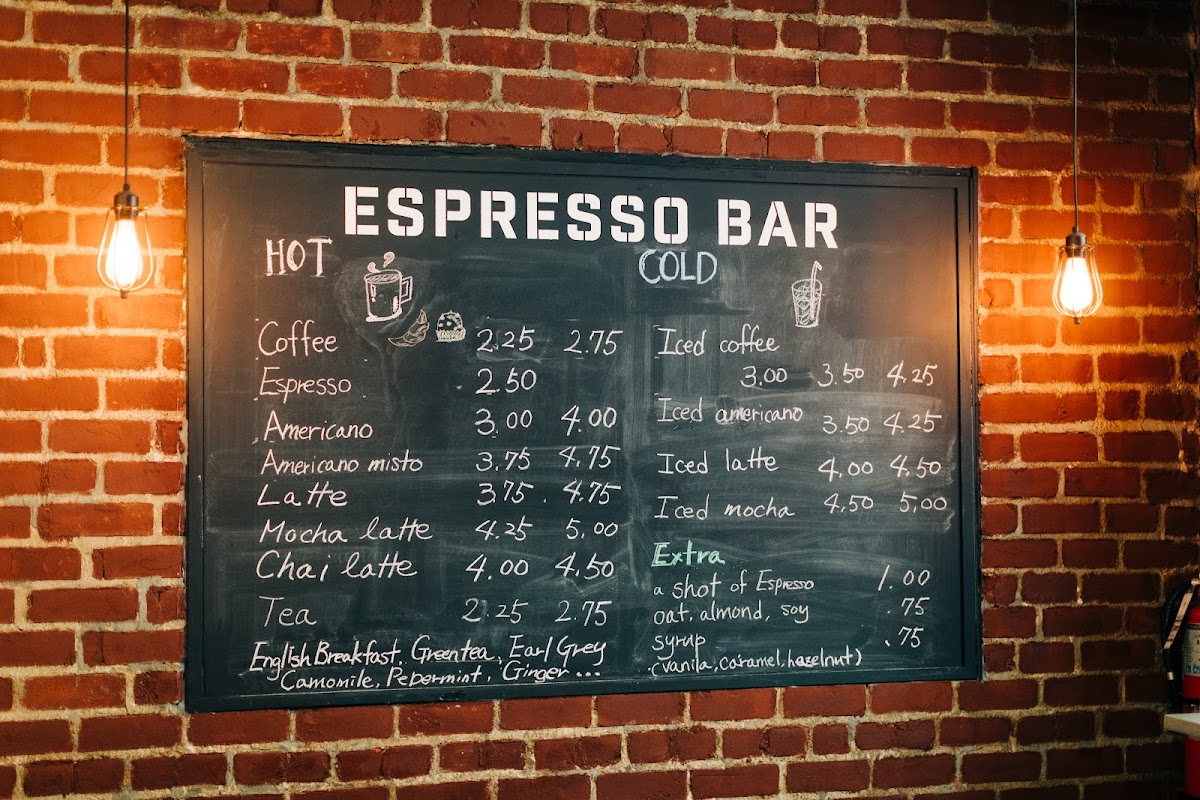 ESPRESSO BAR
HOT
Coffee 2.25 2.75
Espresso 2.50
Americano 3.00 4.00
Americano misto 3.75 4.75
Latte 3.75 4.75
Mocha latte 4.25 5.00
Chai latte 4.00 4.50
Tea 2.25 2.75
English Breakfast, Green tea, Earl Grey
Camomile, Pepermint, Ginger ...
COLD
Iced coffee
3.00 3.50 4.25
Iced americano 3.50 4.25
Iced latte 4.00 4.50
Iced mocha 4.50 5.00
Extra
a shot of Espresso 1.00
oat, almond, soy .75
syrup .75
(vanila, caramel, hazelnut)